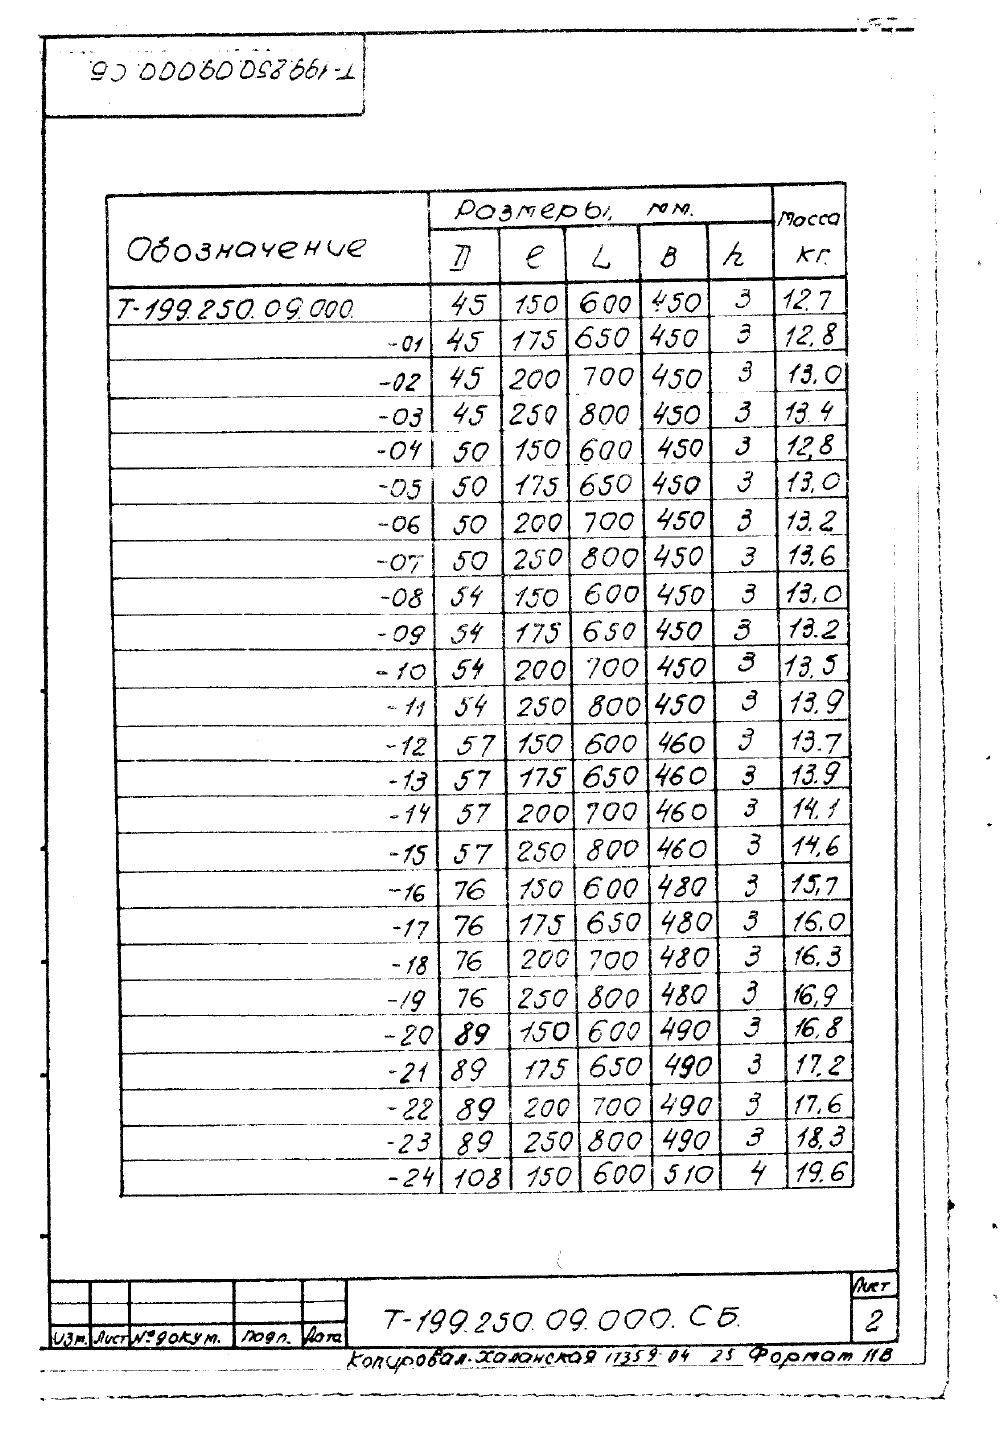 Т-199.250.09.000.СБ.
Обозначение Размеры, мм. Масса кг.
D ℓ L B h
Т-199.250.09.000. 45 150 600 450 3 12.7
-01 45 175 650 450 3 12,8
-02 45 200 700 450 3 13.0
-03 45 250 800 450 3 13.4
-04 50 150 600 450 3 12,8
-05 50 175 650 450 3 13,0
-06 50 200 700 450 3 13.2
-07 50 250 800 450 3 13,6
-08 54 150 600 450 3 13,0
-09 54 175 650 450 3 13.2
-10 54 200 700 450 3 13,5
-11 54 250 800 450 3 13.9
-12 57 150 600 460 3 13.7
-13 57 175 650 460 3 13.9
-14 57 200 700 460 3 14.1
-15 57 250 800 460 3 14,6
-16 76 150 600 480 3 15,7
-17 76 175 650 480 3 16,0
-18 76 200 700 480 3 16,3
-19 76 250 800 480 3 16,9
-20 89 150 600 490 3 16,8
-21 89 175 650 490 3 17,2
-22 89 200 700 490 3 17,6
-23 89 250 800 490 3 18,3
-24 108 150 600 510 4 19.6
Изм. Лист № докум. Подп. Дата
Т-199.250.09.000.СБ.
Лист
2
Копировал. Халанская 17359-04 25 Формат 11В